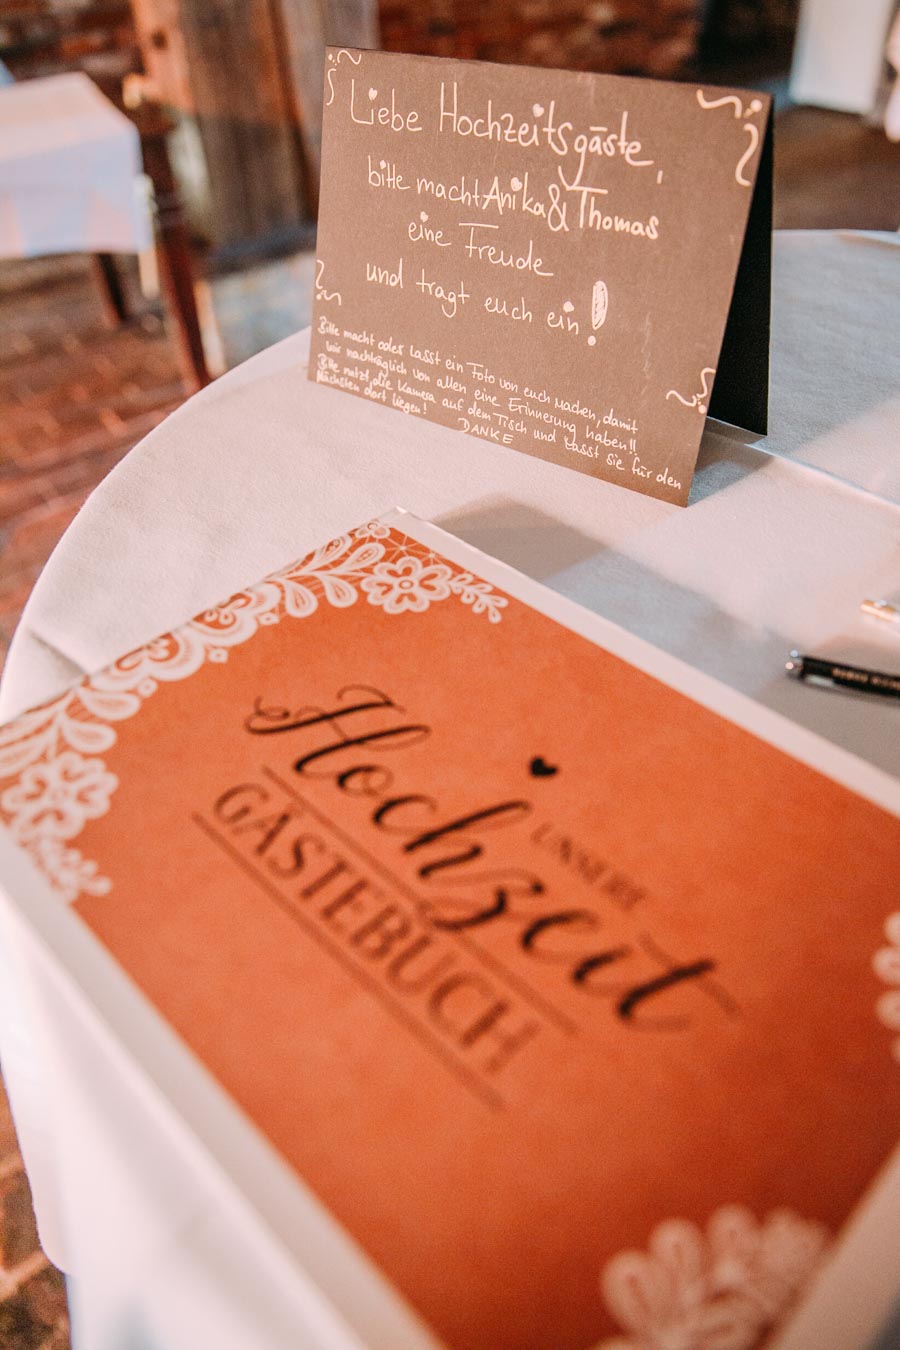 Liebe Hochzeitsgäste,
bitte macht Anika & Thomas
eine Freude
und tragt euch ein!
Bitte macht oder lasst ein Foto von euch machen, damit
wir nachträglich von allen eine Erinnerung haben!!
Bitte nutzt die Kamera auf dem Tisch und lasst sie für den
Nächsten dort liegen!
DANKE
UNSERE
Hochzeit
GÄSTEBUCH